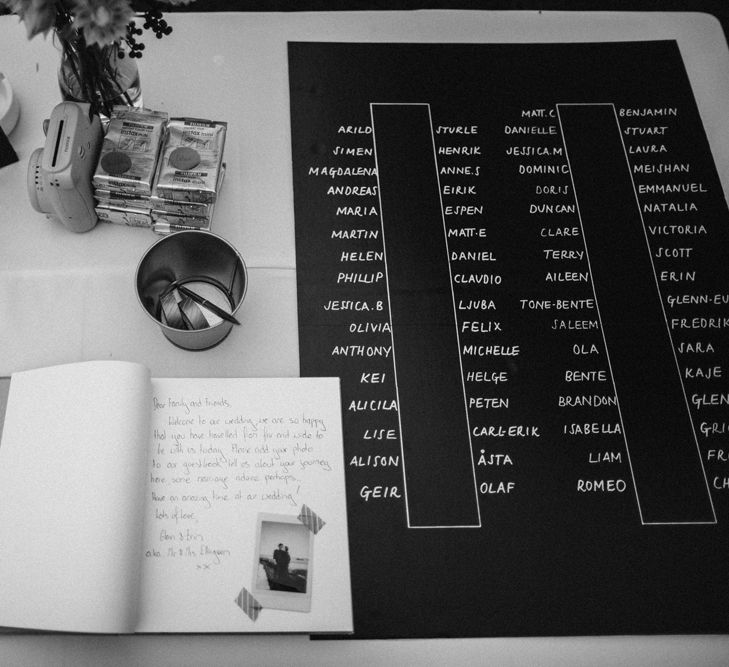 MATT.C BENJAMIN
ARILD STURLE DANIELLE STUART
SIMEN HENRIK JESSICA.M LAURA
MAGDALENA ANNE.S DOMINIC MEISHAN
ANDREAS EIRIK DORIS EMMANUEL
MARIA ESPEN DUNCAN NATALIA
MARTIN MATT.E CLARE VICTORIA
HELEN DANIEL TERRY SCOTT
PHILLIP CLAUDIO AILEEN ERIN
JESSICA.B LJUBA TONE-BENTE GLENN-EU
OLIVIA FELIX SALEEM FREDRIK
ANTHONY MICHELLE OLA SARA
KEI HELGE BENTE KAJE
ALICILA PETEN BRANDON GLEN
LISE CARL-ERIK ISABELLA GRI
ALISON ÅSTA LIAM FR
GEIR OLAF ROMEO CH
FUJIFILM
instax mini
instax mini
Dear Family and Friends,
Welcome to our wedding, we are so happy
that you have travelled from far and wide to
be with us today. Please add your photo
to our guestbook, tell us about your journey
here, some marriage advice perhaps..
Have an amazing time at our wedding!
Lots of love,
Glen & Erin
a.k.a. Mr & Mrs
xx